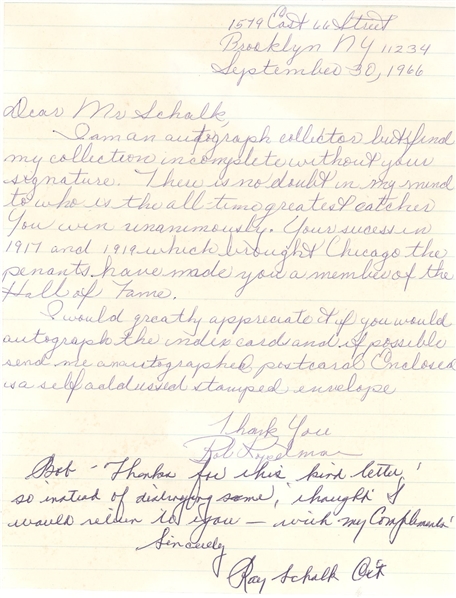 1579 East 66 Street
Brooklyn NY 11234
September 30, 1966
Dear Mr Schalk,
I am an autograph collector but find
my collection incomplete without your
signature. There is no doubt in my mind
to who is the all time greatest catcher
You win unanimously. Your sucess in
1917 and 1919 which brought Chicago the
penants have made you a member of the
Hall of Fame.
I would greatly appreciate it if you would
autograph the index card and if possible
send me an autographed postcard Enclosed
is a self addressed stamped envelope
Thank You
Bob
Bob - Thanks for this kind letter,
so instead of destroying same, thought I
would return to you - with my Compliments
Sincerely
Ray Schalk